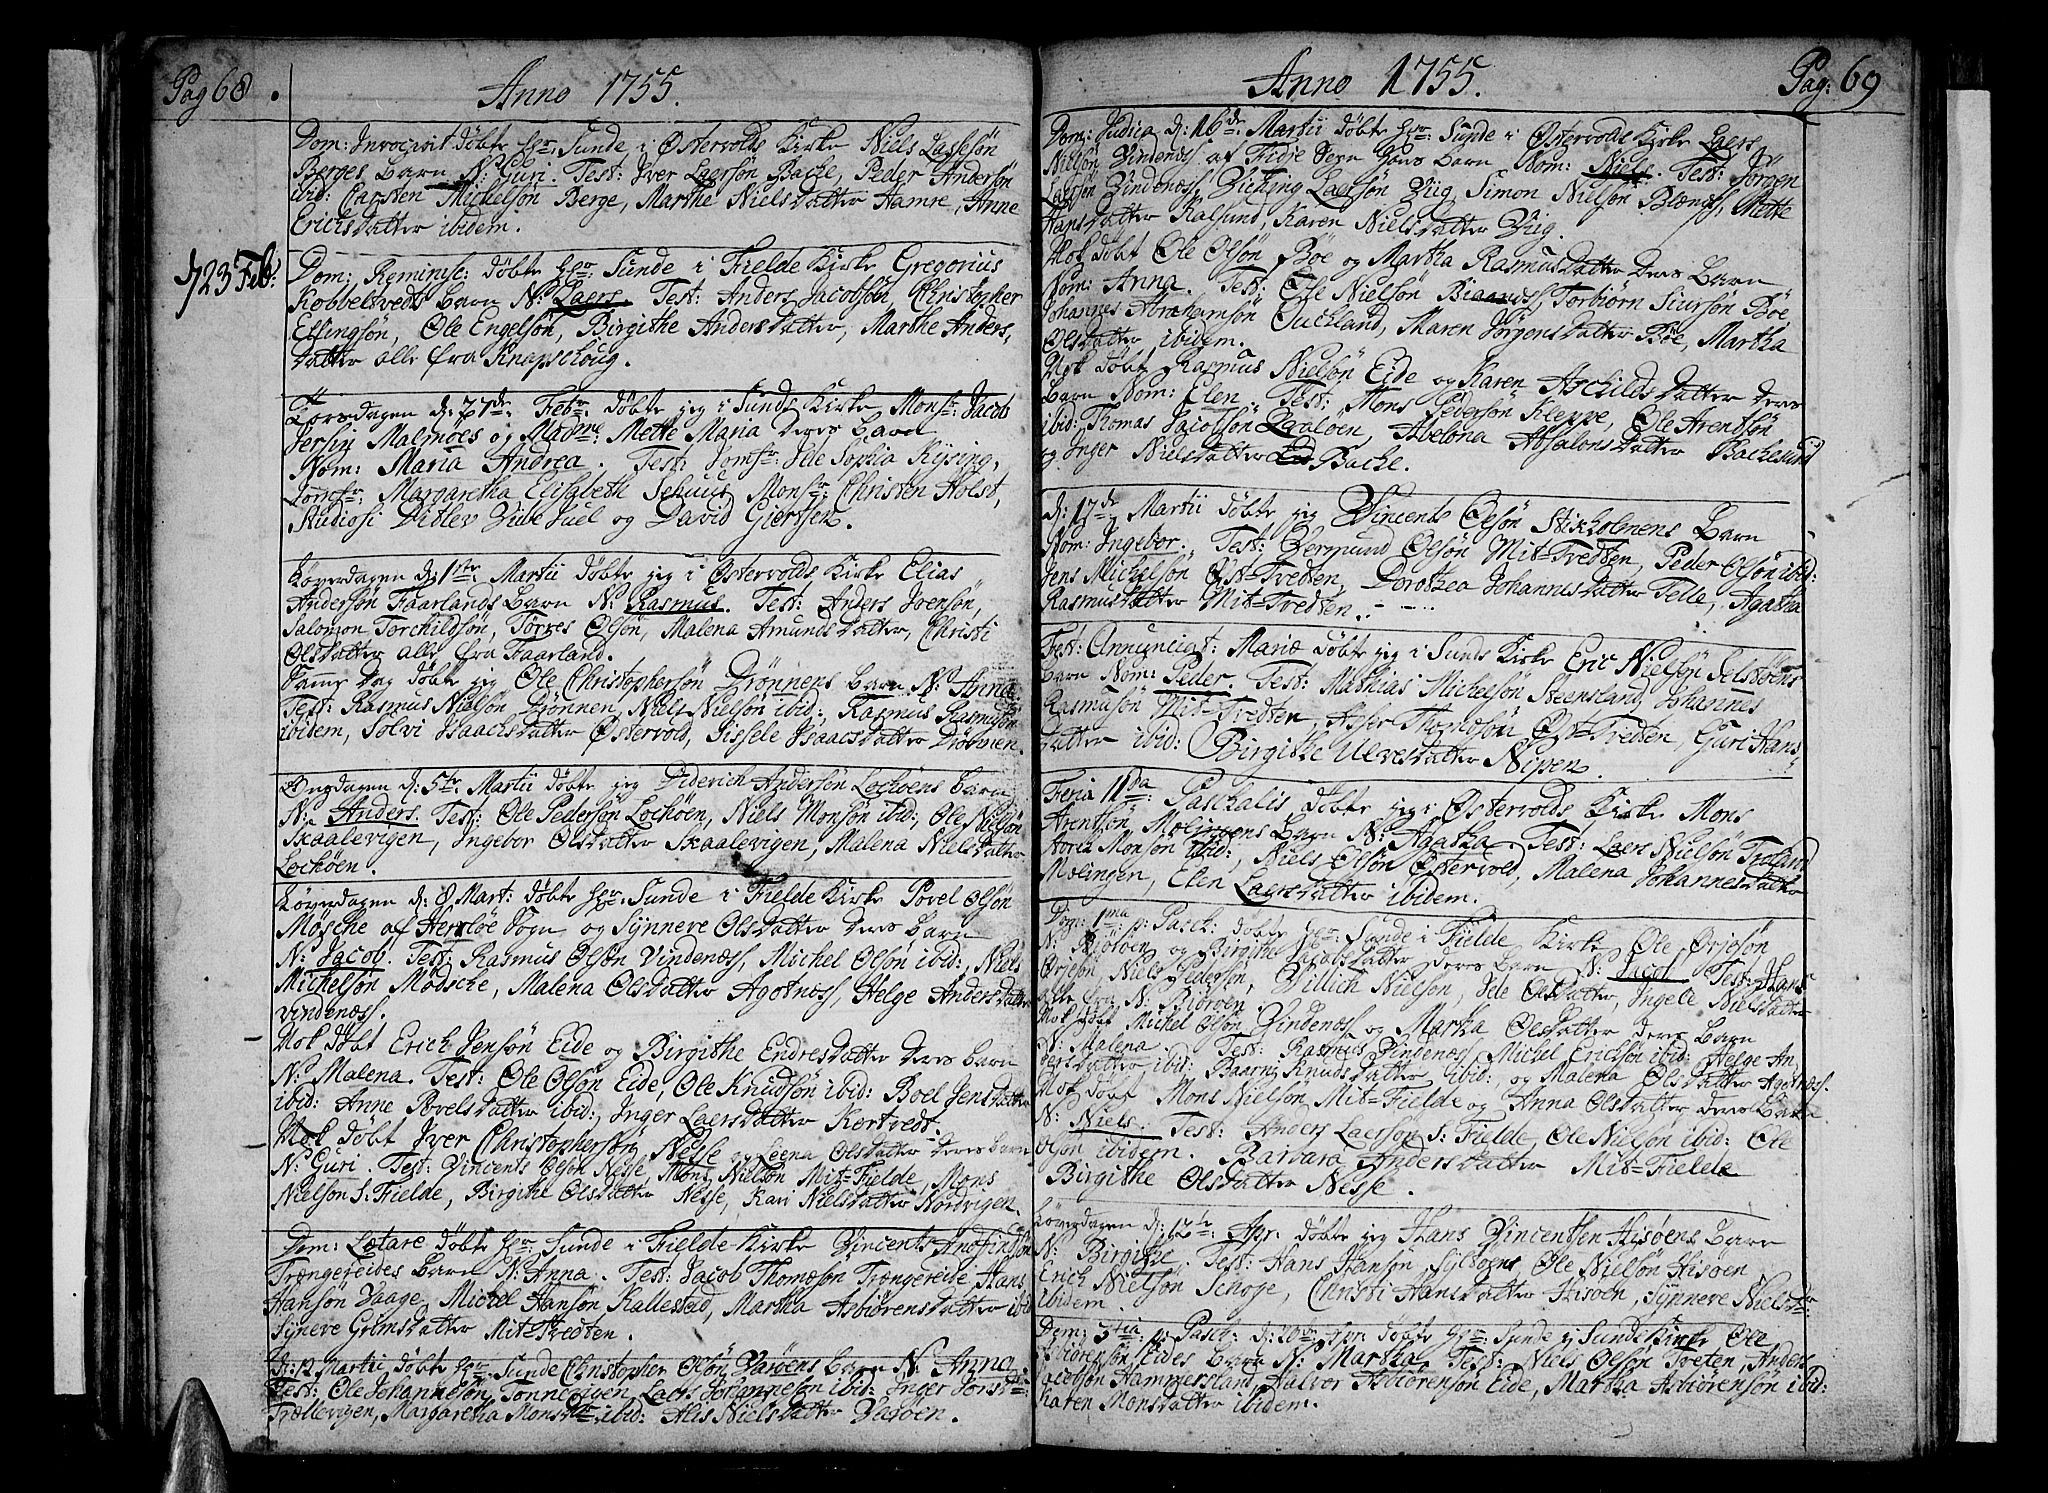 Pag 68. Anno 1755.
Dom: Invocavit døbte Hr: Sunde i Østervolds Kirke Niels Lassesøn
Berges barn N: Guri. Test: Iver Laersøn Bache, Peder Andersøn
ibid: Carsten Michelsøn Berge, Marthe Nielsdatter Hamre, Anne
Erichsdatter ibidem.
d 23 Feb:
Dom: Reminisc: døbte Hr: Sunde i Fielde Kirke Gregorius
Kobbeltvedts barn N: Laers. Test: Anders Jacobsøn, Christopher
Ellingsøn, Ole Engelsøn, Birgithe Andersdatter, Marthe Anders,
datter alle fra Knapschoug.
Torsdagen d: 27de Febr: døbte jeg i Sunds Kirke Monsr: Jacob
Jersin Malmøes og Madme: Mette Maria deres barn
Nom: Maria Andrea. Test: Jomfr: Ide Sophia Kysing,
Jomfr: Margaretha Elisabeth Schuus, Monsr: Christen Holst,
Studiosi Ditlev Vibe Juel og David Giertsen.
Løverdagen d: 1ste Martii døbte jeg i Østervolds Kirke Elias
Andersøn Faarlands barn N: Rasmus. Test: Anders Ivensøn,
Salomon Torchildsøn, Torres Olsøn, Malena Amundsdatter, Christi
Olsdatter alle fra Faarland.
Samme dag døbte jeg Ole Christophersøn Drønnens barn N: Anna
Test: Rasmus Nielsøn Drønnen, Niels Nielsøn ibid:, Rasmus Rasmusøn
ibidem, Solvi Isaachsdatter Østervold, Sissele Isaacsdatter Drønnen.
Onsdagen d: 5te Martii døbte jeg Diderich Andersøn Lochøens barn
N: Anders. Test: Ole Pedersøn Lochøen, Niels Monsøn ibid:, Ole Nielsøn
Skaalevigen, Ingebor Olsdatter Skaalevigen, Malena Nielsdatter
Lochøen.
Løverdagen d: 8 Mart: døbte Hr: Sunde i Fielde Kirke Povel Olsøn
Møsche af Herløe Sogn og Synnere Olsdatter deres barn
N: Jacob. Test: Rasmus Olsøn Vindenæss, Michel Olsøn ibid:, Niels
Michelsøn Mødsche, Malena Olsdatter Agotnæss, Helge Andersdatter
Vindenæss.
Nok døbt Erich Jensøn Eide og Birgithe Endresdatter deres barn
N: Malena. Test: Ole Olsøn Eide, Ole Knudsøn ibid: Boel Jensdatter
ibid: Anne Povelsdatter ibid:, Inger Laersdatter Kortvedt.
Nok døbt Iver Christophersøn Nesse og Leena Olsdatter deres barn
N: Guri. Test: Vincents Olsøn Nesse, Mons Nielsøn Mit-Fielde, Mons
Nielsøn S: Fielde, Birgithe Olsdatter Nesse, Kari Nielsdatter Nordvigen.
Dom: Lætare døbte Hr: Sunde i Fielde Kirke Vincents Anofindsøn
Trængereides barn N: Anna. Test: Jacob Thomæsøn Trængereide, Hans
Hansøn Vaage, Michel Hansøn Kallestad, Martha Asbiørensdatter ibid
Synere Gelmsdatter Mit-Tvedten.
d: 12 Martii døbte Hr: Sunde Christopher Olsøn Varøens barn N: Anna.
Test: Ole Johannesøn Tonneøgen, Laers Johannesøn ibid: Inger
Trællevigen, Margaretha Monsdtr ibid: Alis Nielsdatter Varøen.
Anno 1755. Pag: 69
Dom: Judica d: 16de Martii døbte Hr: Sunde i Østervolds Kirke Laers
Nielsøn Vindenæss af Fidje Sogn hans barn Nom: Niels. Test: Jørgen
Laersøn Vindenæss, Viching Laersøn Viig, Simon Nielsøn Blængs, Mette
Hansdatter Kalsund, Karen Nielsdatter Viig.
Nok døbt Ole Olsøn Bøe og Martha Rasmusdatter deres barn
Nom: Anna. Test: Ole Nielsøn Biaanæss, Torbiørn Siursøn Bøe
Johannes Abrahamsøn Ouchland, Maren Jørgensdatter Bøe, Martha
Olsdatter ibidem.
Nok døbt Rasmus Nielsøn Eide og Karen Aschildsdatter deres
barn Nom: Elen. Test: Mons Pedersøn Kleppe, Ole Arentsøn
ibid: Thomas Jacobsøn Lauløen, Abelona Absalonsdatter Bachesund
og Inger Nielsdatter Bache.
d: 17de Martii døbte jeg Vincents Olsøn Stikholmens barn
Nom: Ingebor. Test: Vermund Olsøn Mit-Tvedten, Peder Olsøn ibid:
Jens Michelsøn Øst-Tvedten, Dorothea Johannesdatter Telle, Agatha
Rasmusdatter Mit-Tvedten.
Fest: Annunciat: Mariæ døbte jeg i Sunds Kirke Eric Nielsøn Selstøens
barn Nom: Peder. Test: Mathias Michelsøn Steensland, Johannes
Rasmusøn Mit-Tvedten, Asser Thomæsøn Øst-Tvedten, Guri Hans-
datter ibid: Birgithe Ulvesdatter Nipen.
Feria IIda: Paschalis døbte jeg i Østervolds Kirke Mons
Arentsøn Møllingens barn N: Agatha. Test: Laers Nielsøn Træland
Monsøn ibid:, Niels Olsøn Østervold, Malena Johannesdatter
Mølingen, Elen Laersdatter ibidem.
Dom: 1ma p: Pasch: døbte Hr: Sunde i Fielde Kirke Ole Ørjesøn
N: Biøroen og Birgithe Jacobsdatter deres barn N: Jacob. Test: Hans
Ørjesøn, Niels Pedersøn, Villich Nielsøn, Ide Olsdatter, Ingele Nielsdatter
alle fra N: Biøroen.
Nok døbt Michel Olsøn Vindenæss og Martha Olsdatter deres barn
N: Malena. Test: Rasmus Vindenæss, Michel Ericksøn ibid: Helge An,
dersdatter ibid: Baarni Knudsdatter ibid:, og Malena Olsdatter Agotnæss.
Nok døbt Mons Nielsøn Mit-Fielde og Anna Olsdatter deres barn
N: Niels. Test: Anders Laersøn S: Fielde, Ole Nielsøn ibid: Ole
Olsøn ibidem. Barbara Andersdatter Mit-Fielde
Birgithe Olsdatter Nesse.
Løverdagen d: 12te Apr. døbte jeg Hans Vincentsen Hisøens barn
N: Birgithe. Test: Hans Hansøn Syltøens, Ole Nielsøn Hisøen
Erich Nielsøn Schoge, Christi Hansdatter Hisøen, Synnere Nielsdtr
ibidem.
Dom: 3tia p: Pasch: d: 20de Apr: døbte Hr: Sunde i Sunds Kirke Ole
Asbiørensøn Eides barn N: Martha. Test: Niels Olsøn Tveten, Anders
Jacobsøn Hammersland, Halver Asbiørensøn Eide, Martha Asbiørensøn ibid:
Karen Monsdatter ibidem.